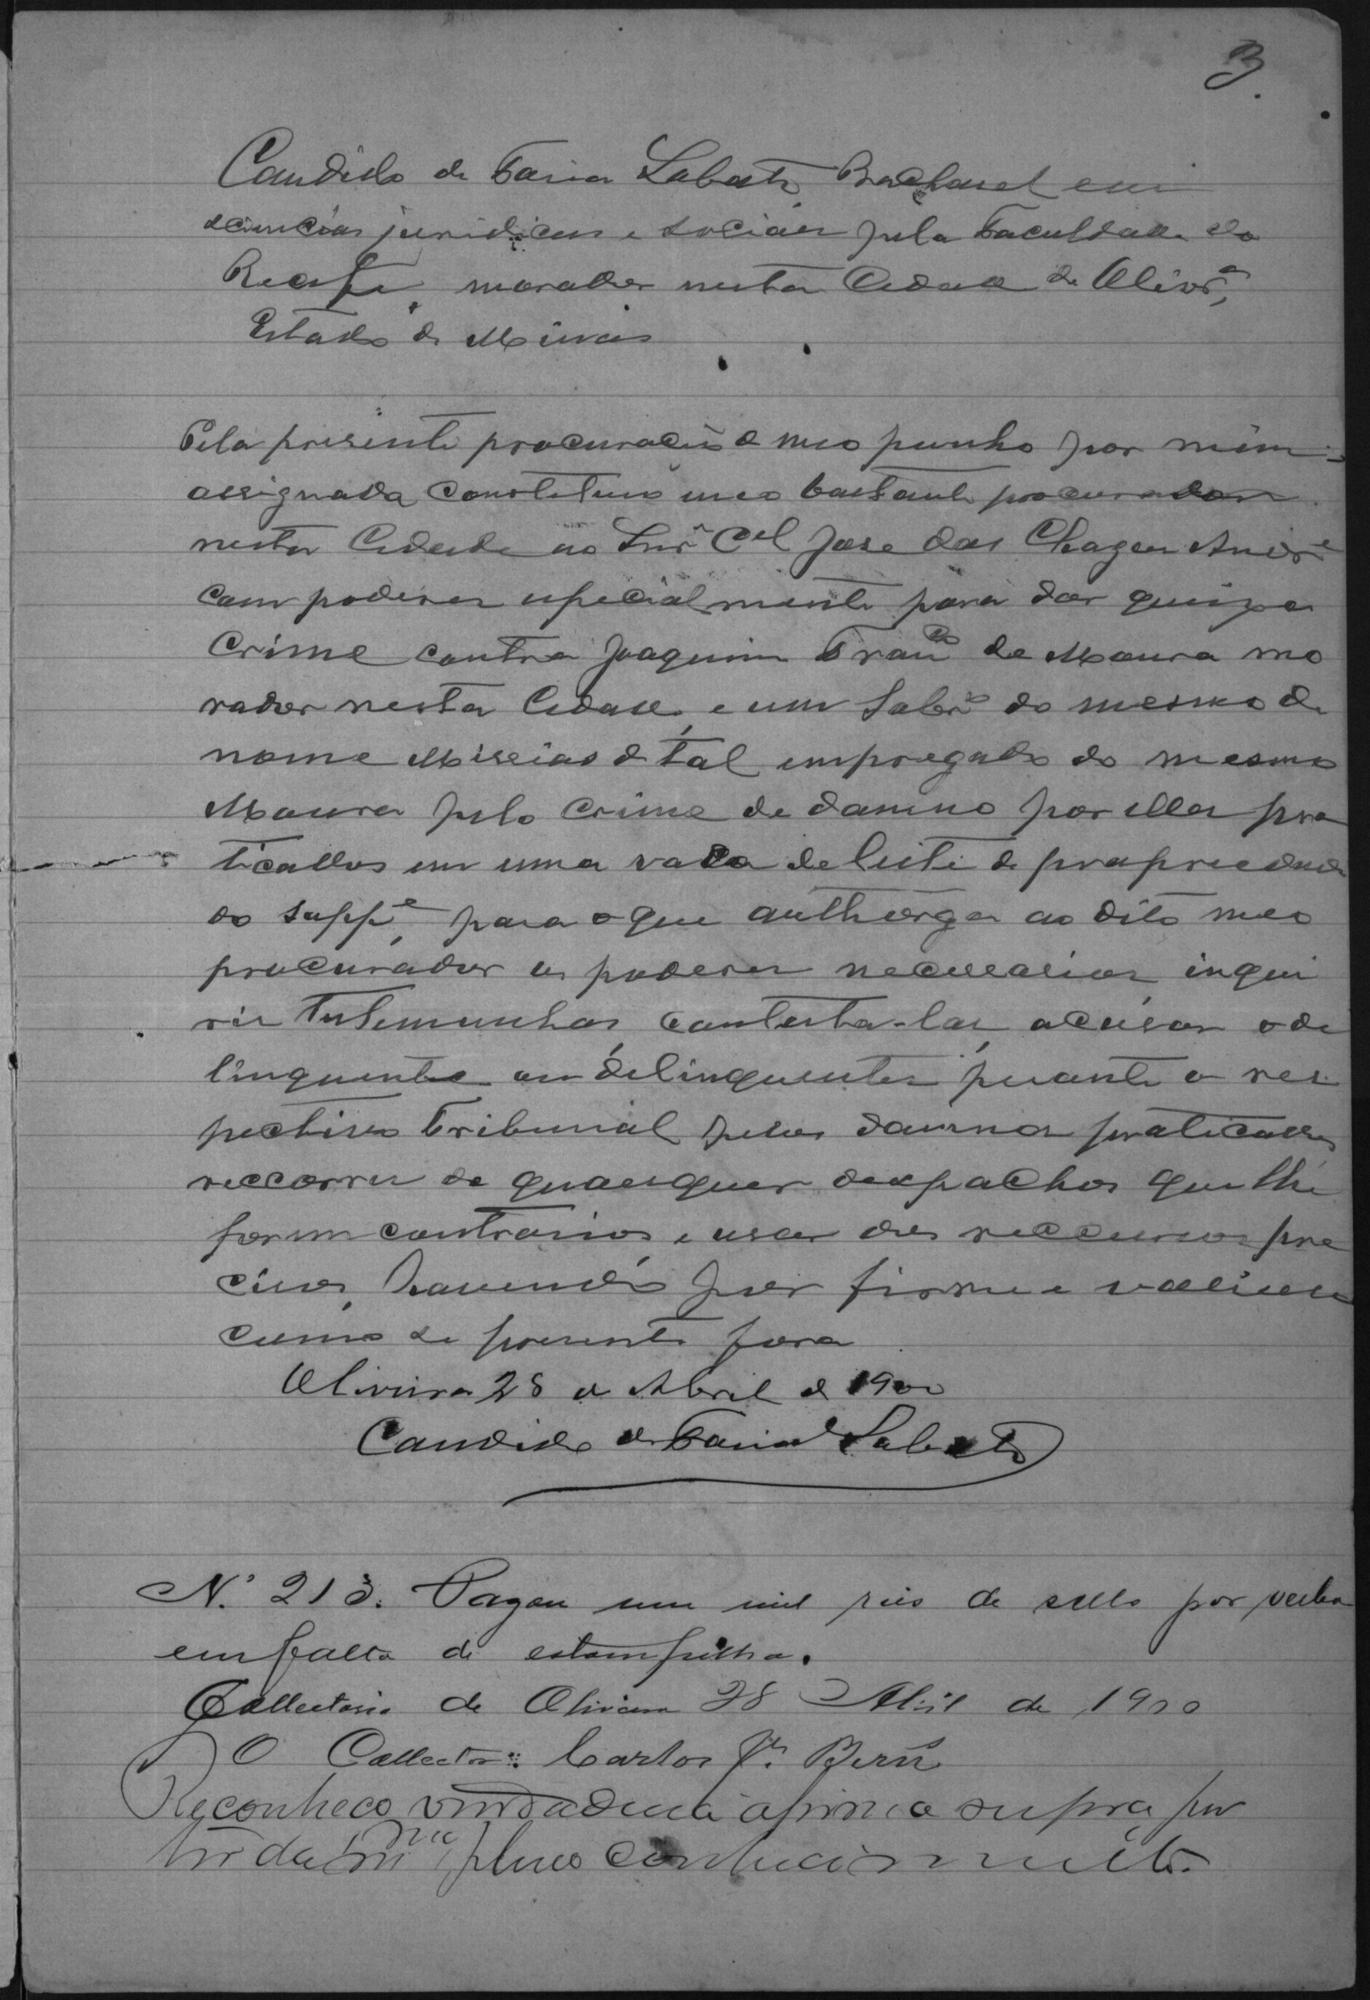 3
Candido de Faria Lobato, Bacharel em
sciencias juridicas e sociaes pela Faculdade do
Recife, morador nesta Cidade de Olivrª,
Estado de Minas
Pela presente procuração de meo punho por mim
assignada constituo meo bastante procurador
nesta Cidade ao Snr Cel Jose das Chagas Andre
com poderes especialmente para dar queixa
crime contra Joaquim Franco de Moura mo
rador nesta Cidade, e um Sobrº do mesmo de
nome Misseias de tal empregado do mesmo
Moura pelo crime de damno por elles pra
ticados em uma vaca de leite de propriedade
do suppe, para o que outhorga ao dito meo
procurador os poderes necessarios inqui
rir testemunhas, contesta-las, acusar o de
linquente ou delinquentes perante o res
pectivo tribunal pelos damnos praticados
reccorrer de quaesquer despachos que lhe
forem contrarios, e usar dos reccursos pre
cisos, havendo por firme e valioso
como se presente fora
Oliveira 28 de Abril de 1900
Candido de Faria Lobato
N. 213. Pagou um mil reis de sello por verba
em falta de estampilha.
Collectoria de Oliveira 28 Abril de 1900
O Collector: Carlos Jr.
Reconheco verdadeira a firma supra por
ter da mma pleno conhecimento.